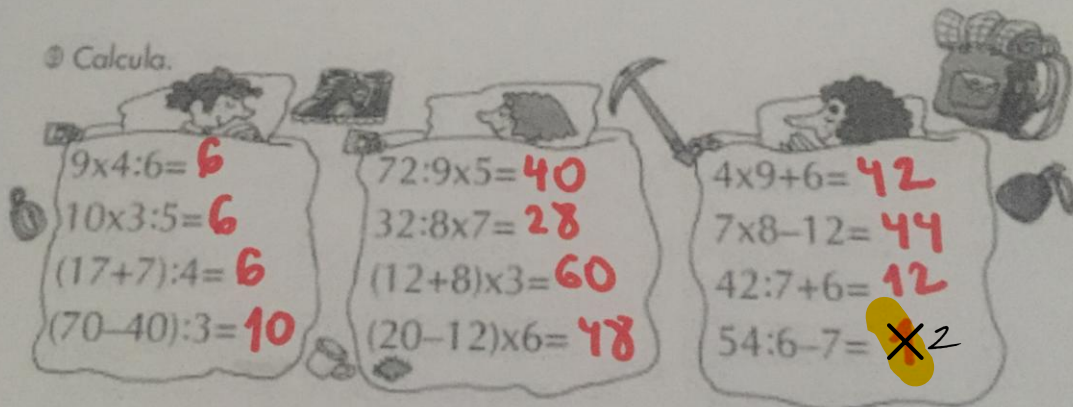 ③ Calcula.
9x4:6= 6
10x3:5= 6
(17+7):4= 6
(70–40):3= 10
72:9x5= 40
32:8x7= 28
(12+8)x3= 60
(20–12)x6= 48
4x9+6= 42
7x8–12= 44
42:7+6= 12
54:6–7= 2